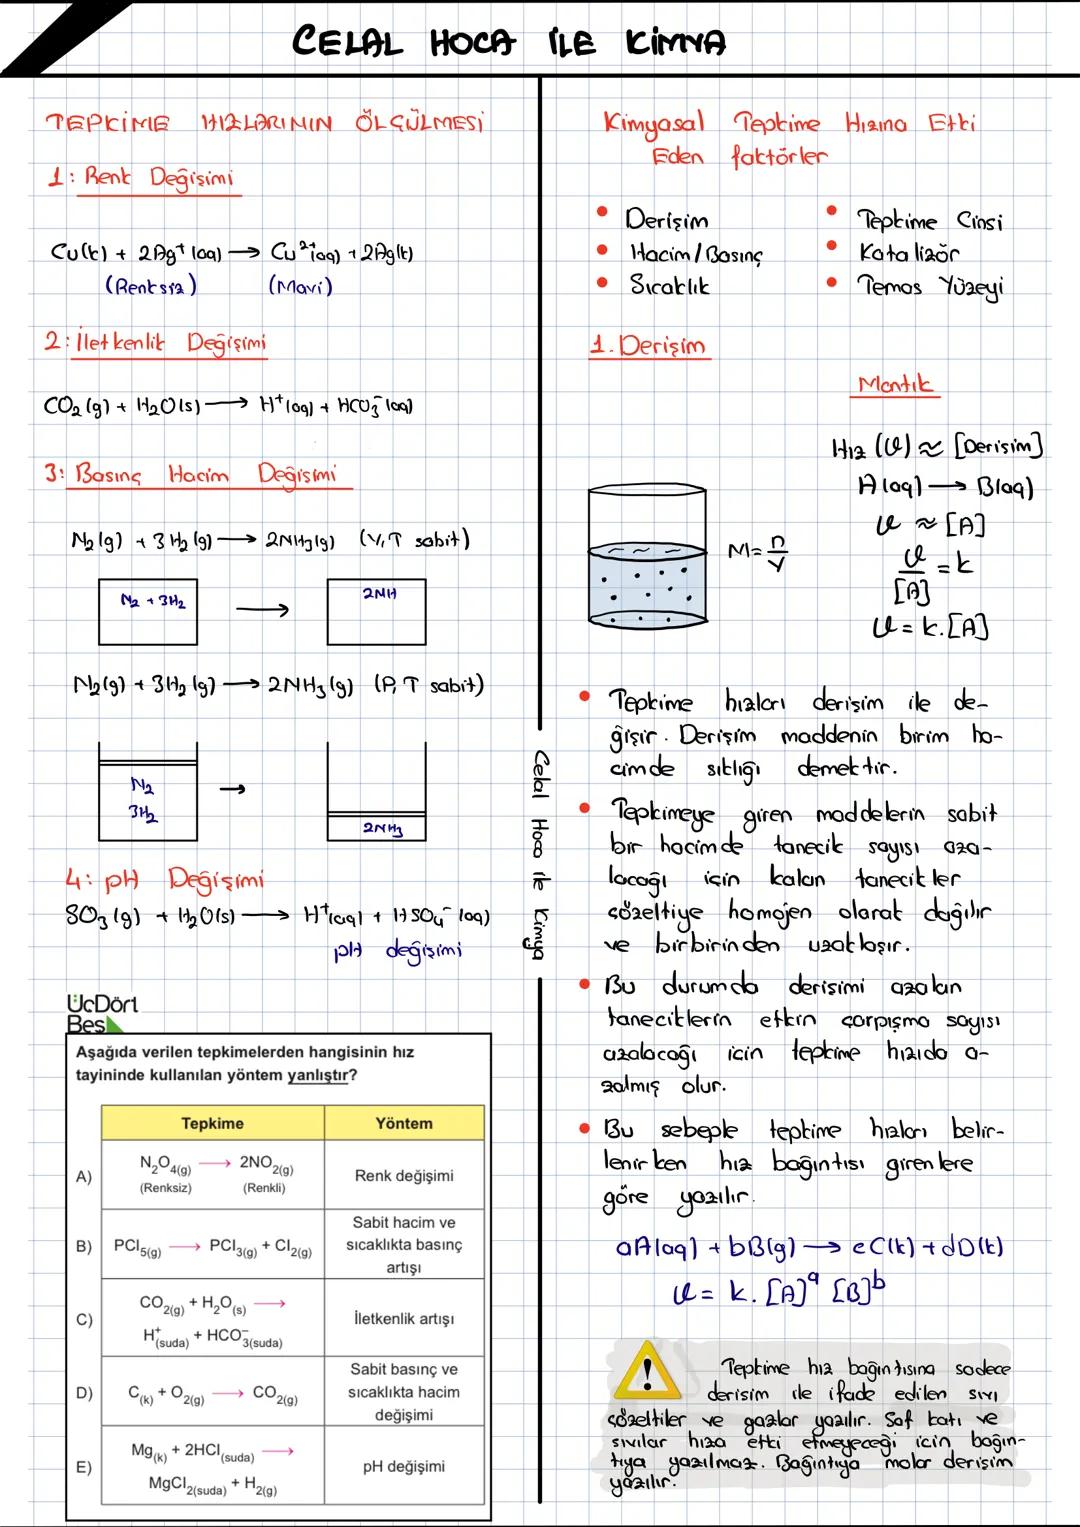 CELAL HOCA İLE KİMYA
TEPKİME HIZLARININ ÖLÇÜLMESİ
1: Renk Değişimi
Cu(k) + 2Ag⁺(aq) → Cu²⁺(aq) + 2Ag(k)
(Renksiz) (Mavi)
2: İletkenlik Değişimi
CO₂(g) + H₂O(s) → H⁺(aq) + HCO₃⁻(aq)
3: Basınç Hacim Değişimi
N₂(g) + 3H₂(g) → 2NH₃(g) (V,T sabit)
N₂ + 3H₂ → 2NH
N₂(g) + 3H₂(g) → 2NH₃(g) (P,T sabit)
N₂ →
3H₂
2NH₃
4: pH Değişimi
SO₃(g) + H₂O(s) → H⁺(aq) + HSO₄⁻(aq)
pH değişimi
ÜcDört
Bes
Aşağıda verilen tepkimelerden hangisinin hız
tayininde kullanılan yöntem yanlıştır?
Tepkime Yöntem
A) N₂O₄(g) → 2NO₂(g) Renk değişimi
(Renksiz) (Renkli)
B) PCl₅(g) → PCl₃(g) + Cl₂(g) Sabit hacim ve
sıcaklıkta basınç
artışı
C) CO₂(g) + H₂O(s) →
H⁺(suda) + HCO₃⁻(suda) İletkenlik artışı
D) C(k) + O₂(g) → CO₂(g) Sabit basınç ve
sıcaklıkta hacim
değişimi
E) Mg(k) + 2HCl(suda) →
MgCl₂(suda) + H₂(g) pH değişimi
Celal Hoca ile Kimya
Kimyasal Tepkime Hızına Etki
Eden faktörler
• Derişim
• Hacim/Basınç
• Sıcaklık
• Tepkime Cinsi
• Katalizör
• Temas Yüzeyi
1. Derişim
Mantık
Hız (v) ≈ [Derisim]
A(aq) → B(aq)
v ≈ [A]
M = n/V
v/[A] = k
v = k.[A]
• Tepkime hızları derişim ile de-
ğişir. Derişim maddenin birim ha-
cimde sıklığı demektir.
• Tepkimeye giren maddelerin sabit
bir hacimde tanecik sayısı aza-
lacağı için kalan tanecikler
çözeltiye homojen olarak dağılır
ve birbirinden uzaklaşır.
• Bu durumda derisimi azalan
taneciklerin etkin çarpışma sayısı
azalacağı icin tepkime hızıda a-
zalmış olur.
• Bu sebeple tepkime hızları belir-
lenirken hız bağıntısı girenlere
göre yazılır.
aA(aq) + bB(g) → cC(k) + dD(k)
v = k.[A]ᵃ [B]ᵇ
Tepkime hız bağıntısına sadece
derisim ile ifade edilen sıvı
çözeltiler ve gazlar yazılır. Saf katı ve
sıvılar hıza etki etmeyeceği icin bağın-
tıya yazılmaz. Bağıntıya molar derişim
yazılır.